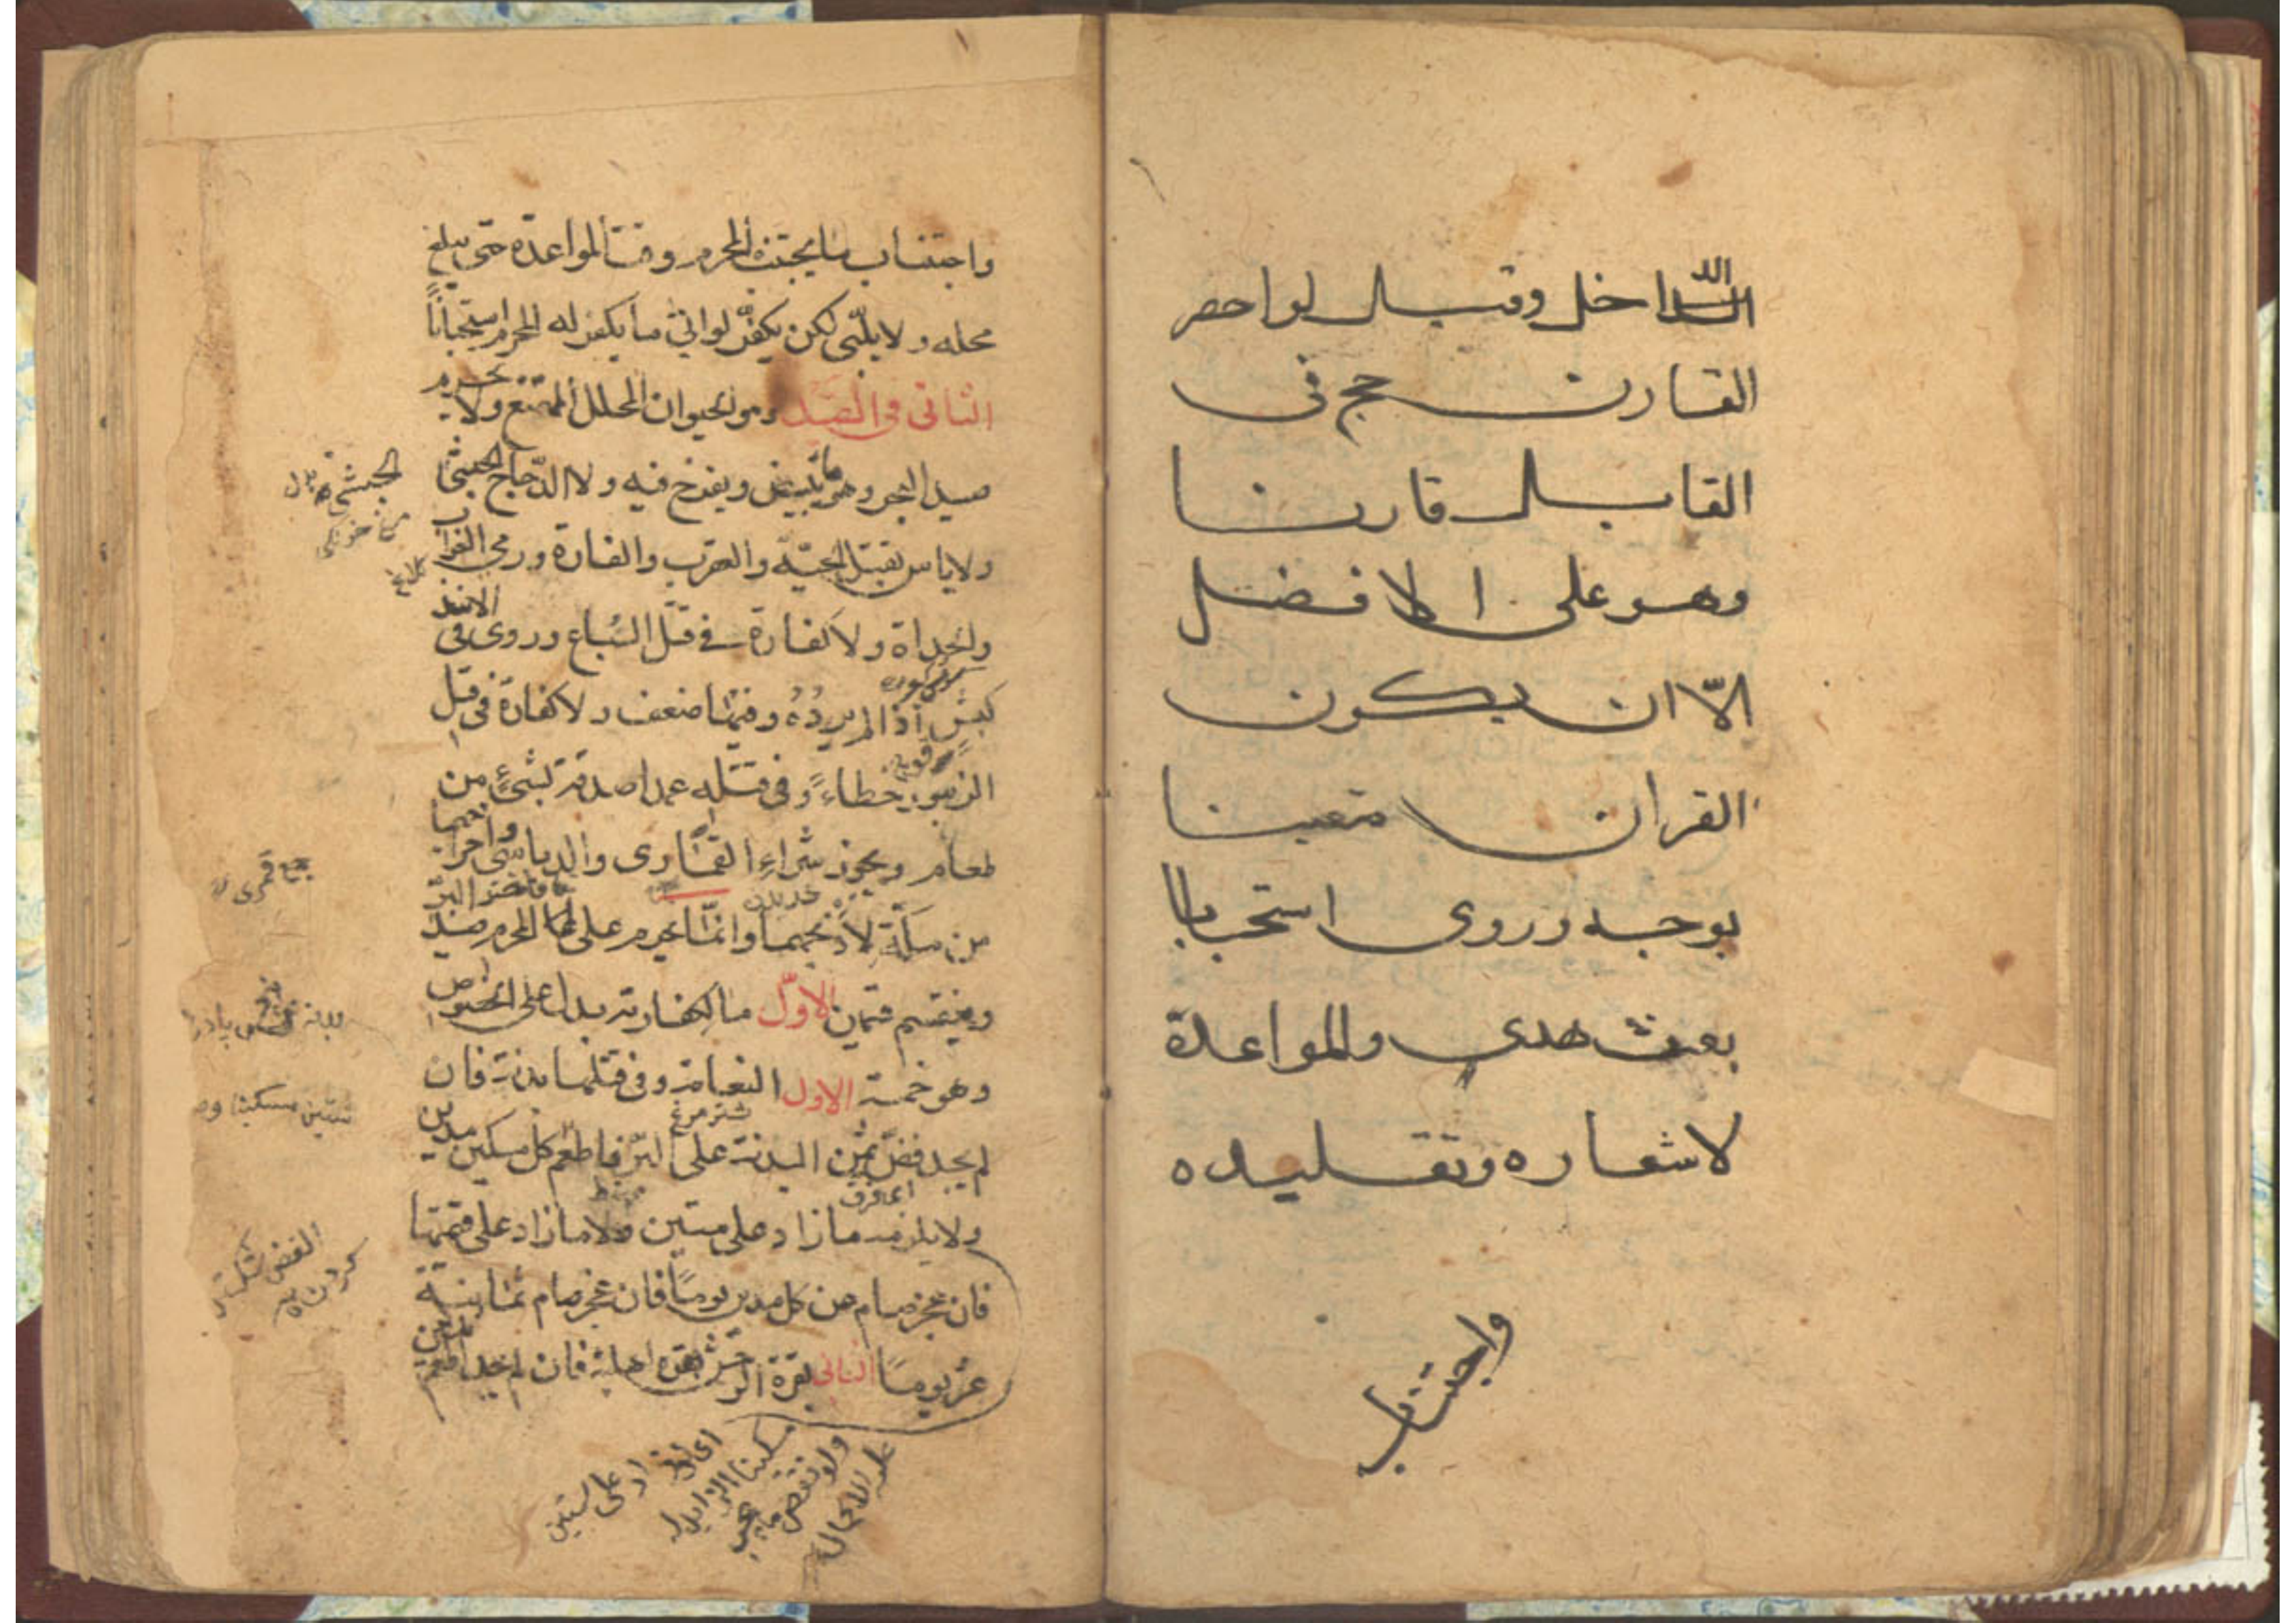 الداخل وقيل لو احصر
القارن حج فى
القابل قارنا
وهو على الافضل
الّا ان يكون
القران متعينا
بوجه وروى استحبابا
بعث هدى والمواعدة
لاشعاره وتقليده
واجتناب
واجتناب ما يجتنبه المحرم وقت المواعدة حتى يبلغ
محله ولا يلبّى لكن يكفّر لو اتى ما يكفر له المحرم استحباباً
الثانى فى الصيد وهو الحيوان المحلل الممتنع ولا يحرم
صيد البحر وهو ما يبيض ويفرخ فيه ولا الدّجاج الحبشى
ولا باس بقتل الحيّة والعقرب والفارة ورمى الغراب
والحداة ولا كفارة فى قتل السّباع وروى فى الاسد
كبش اذا لم يردّه وفيها ضعف ولا كفارة فى قتل
الزنبور خطاءً وفى قتله عمدا صدقة بشىءٍ من
طعام ويجوز شراء القمّارى والدباسى واخراجها
من مكّة لا ذبحهما وانمّا يحرم على المحرم صيد البرّ
وينقسم قسمين الاوّل ما لكفارته بدل على الخصوص
وهو خمسة الاول النعامة وفى قتلها بدنة فان
لم يجد فضّ ثمن البدنة على البرّ فاطعم كل مسكين مدين
ولا يلزمه ما زاد على ستين ولا ما زاد على قيمتها
فان عجز صام عن كل مدين يومًا فان عجز صام ثمانية
عشر يومًا الثانى بقرة الوحش بقرة اهلية فان لم يجد اطعم ثلاثين
شتر مرغ
ستين مسكينا
جمع قمرى
اى ما زاد على ستين